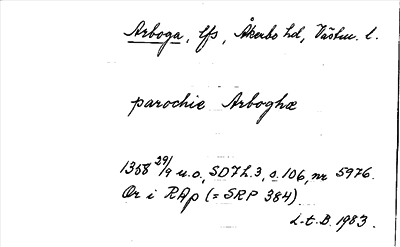 Arboga, lfs, Åkerbo hd, Västm. l.
parochie Arboghæ
1358 29/9 u.o., SD7 h.3, s. 106, nr 5976.
Or i RAp (= SRP 384)
L-t.B. 1983.